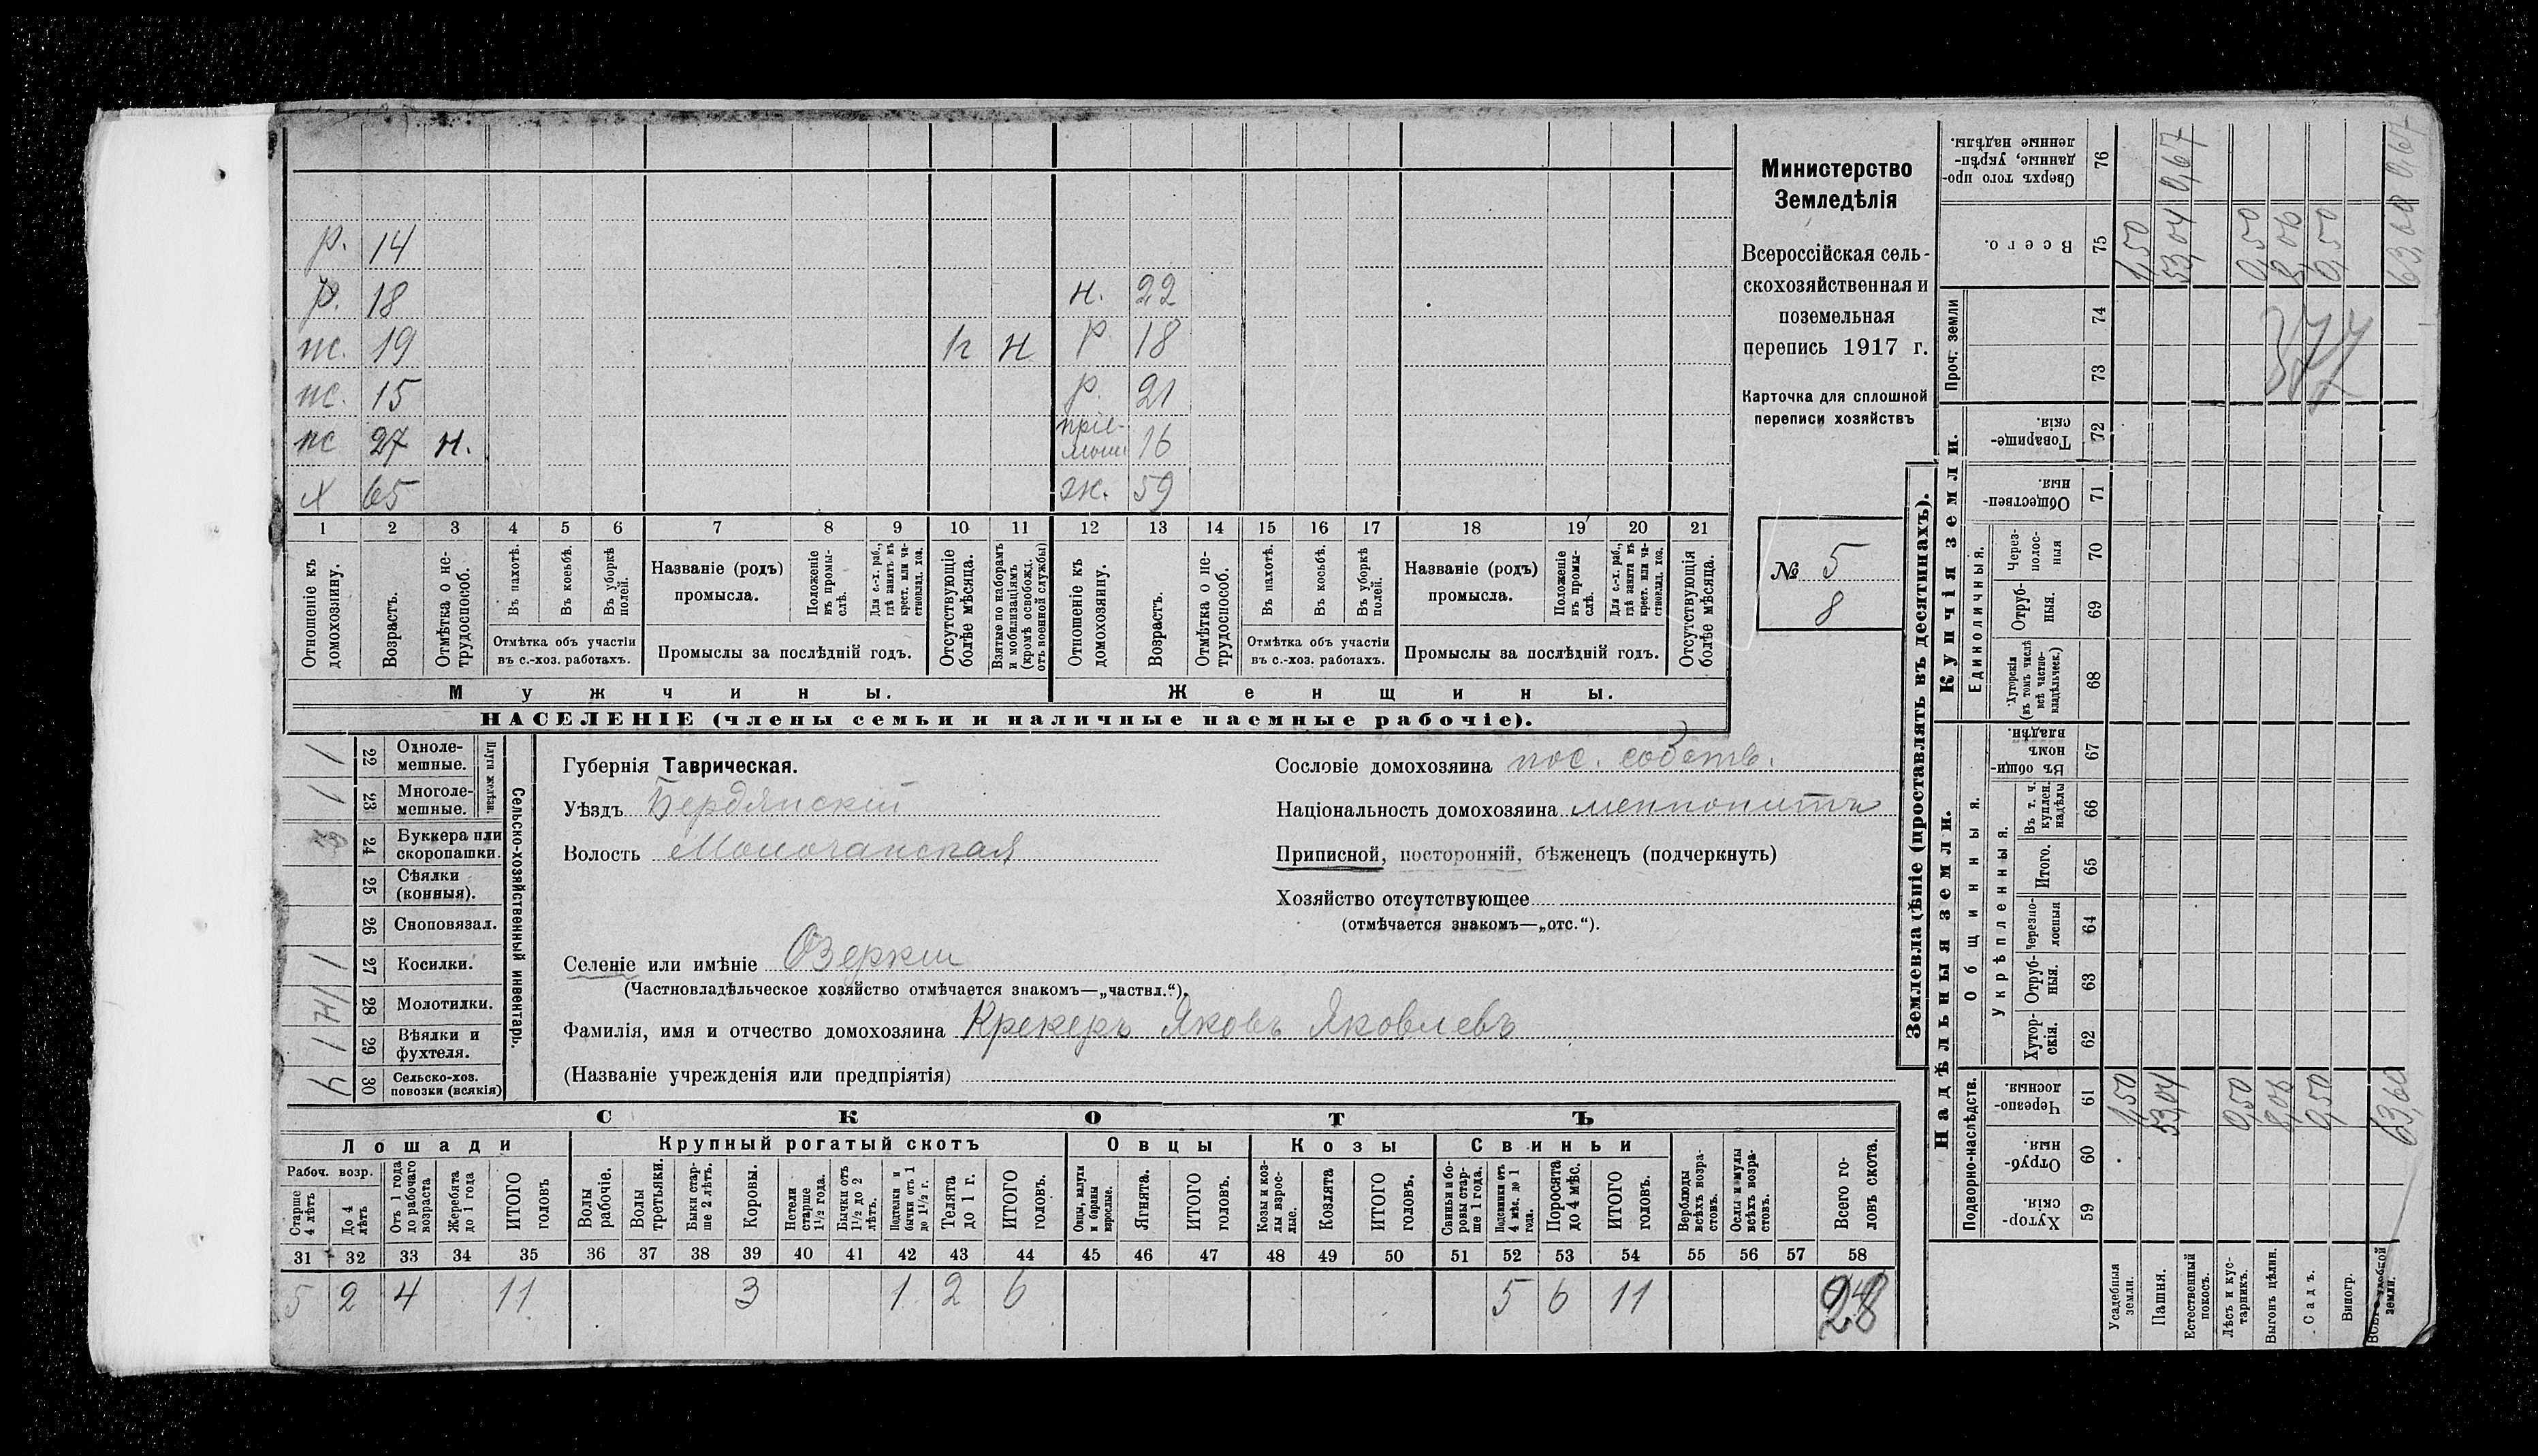 р. 14
р. 18 н. 22
пс. 19 н н р. 18
пс. 15 р. 21
пс 27 н. пріе-
мыш 16
х 65 эк. 59
1 2 3 4 5 6 7 8 9 10 11 12 13 14 15 16 17 18 19 20 21
Отношеніе къ домохозяину.
Возрастъ.
Отмѣтка о не-трудоспособ.
Въ пахотѣ.
Въ косьбѣ.
Въ уборкѣ полей.
Отмѣтка объ участіи
въ с.-хоз. работахъ.
Названіе (родъ)
промысла.
Положеніе въ промы-слѣ.
Для с.-х. раб., гдѣ занятъ въ крест. или ча-стновлад. хоз.
Промыслы за послѣдній годъ.
Отсутствующіе болѣе мѣсяца.
Взятые по наборамъ и мобилизаціямъ (кромѣ освобожд. отъ военной службы)
Отношеніе къ домохозяину.
Возрастъ.
Отмѣтка о не-трудоспособ.
Въ пахотѣ.
Въ косьбѣ.
Въ уборкѣ полей.
Отмѣтка объ участіи
въ с.-хоз. работахъ.
Названіе (родъ)
промысла.
Положеніе въ промы-слѣ.
Для с.-х. раб., гдѣ занята въ крест. или ча-стновлад. хоз.
Промыслы за послѣдній годъ.
Отсутствующія болѣе мѣсяца.
Мужчины. Женщины.
НАСЕЛЕНІЕ (члены семьи и наличные наемные рабочіе).
Министерство
Земледѣлія
Всероссійская сель-
скохозяйственная и
поземельная
перепись 1917 г.
Карточка для сплошной
переписи хозяйствъ
№ 5
8
Сельско-хозяйственный инвентарь.
Плуги желѣзн.
1 22 Одноле-мешные.
1 23 Многоле-мешные.
24 Буккера или скоропашки.
25 Сѣялки (конныя).
26 Сноповязал.
1 27 Косилки.
28 Молотилки.
1 29 Вѣялки и фухтеля.
4 30 Сельско-хоз. повозки (всякія)
Губернія Таврическая.
Уѣздъ Бердянскій
Волость Молочанская
Селеніе или имѣніе Озерки
(Частновладѣльческое хозяйство отмѣчается знакомъ—„частвл.“).
Фамилія, имя и отчество домохозяина Крекеръ Яковъ Яковлевъ
(Названіе учрежденія или предпріятія)
Сословіе домохозяина пос. собств.
Національность домохозяина меннонитъ
Приписной, посторонній, бѣженецъ (подчеркнуть)
Хозяйство отсутствующее
(отмѣчается знакомъ—„отс.“).
СКОТЪ
Лошади Крупный рогатый скотъ Овцы Козы Свиньи
Рабоч. возр.
Старше 4 лѣтъ
До 4 лѣтъ
Отъ 1 года до рабочаго возраста
Жеребята до 1 года
ИТОГО головъ
Волы рабочіе.
Волы третьяки.
Быки стар-ше 2 лѣтъ.
Коровы.
Нетели старше 1½ года.
Бычки отъ 1½ до 2 лѣтъ.
Подтелки и бычки отъ 1 до 1½ г.
Телята до 1 г.
ИТОГО головъ.
Овцы, валухи и бараны взрослые.
Ягнята.
ИТОГО головъ.
Козы и коз-лы взрос-лые.
Козлята
ИТОГО головъ.
Свиньи и бо-ровы стар-ше 1 года.
Подсвинки отъ 4 мѣс. до 1 года.
Поросята до 4 мѣс.
ИТОГО головъ.
Верблюды всѣхъ возра-стовъ.
Ослы и мулы всѣхъ возра-стовъ.
Всего го-ловъ скота.
31 32 33 34 35 36 37 38 39 40 41 42 43 44 45 46 47 48 49 50 51 52 53 54 55 56 57 58
5 2 4 11 3 1 2 6 5 6 11 28
Землевладѣніе (проставлять въ десятинахъ).
Надѣльныя земли. Купчія земли.
Подворно-наслѣдств.
Общинныя.
Укрѣпленныя.
Единоличныя.
Проч. земли
Хутор-скія. 59
Отруб-ныя. 60
Черезпо-лосныя 61
Хутор-скія. 62
Отруб-ныя. 63
Черезпо-лосныя 64
Итого. 65
Въ т. ч. куплен. надѣлы 66
Въ общи-номъ владѣн. 67
Хуторскія (въ томъ числѣ всѣ частно-владѣльческ.) 68
Отруб-ныя. 69
Через-полос-ныя 70
Обществен-ныя. 71
Товарище-скія. 72
73
74
Всего. 75
Сверхъ того про-данные, укрѣп-ленные надѣлы. 76
Усадебныя земли. 1,50 1,50
Пашня. 53,04 53,04 0,67
Естественный покосъ.
Лѣсъ и кус-тарникъ. 0,50 0,50
Выгонъ цѣлин. 8,06 8,06
Садъ. 0,50 0,50
Виногр.
Всего удобной земли. 63,60 63,60 0,67
377